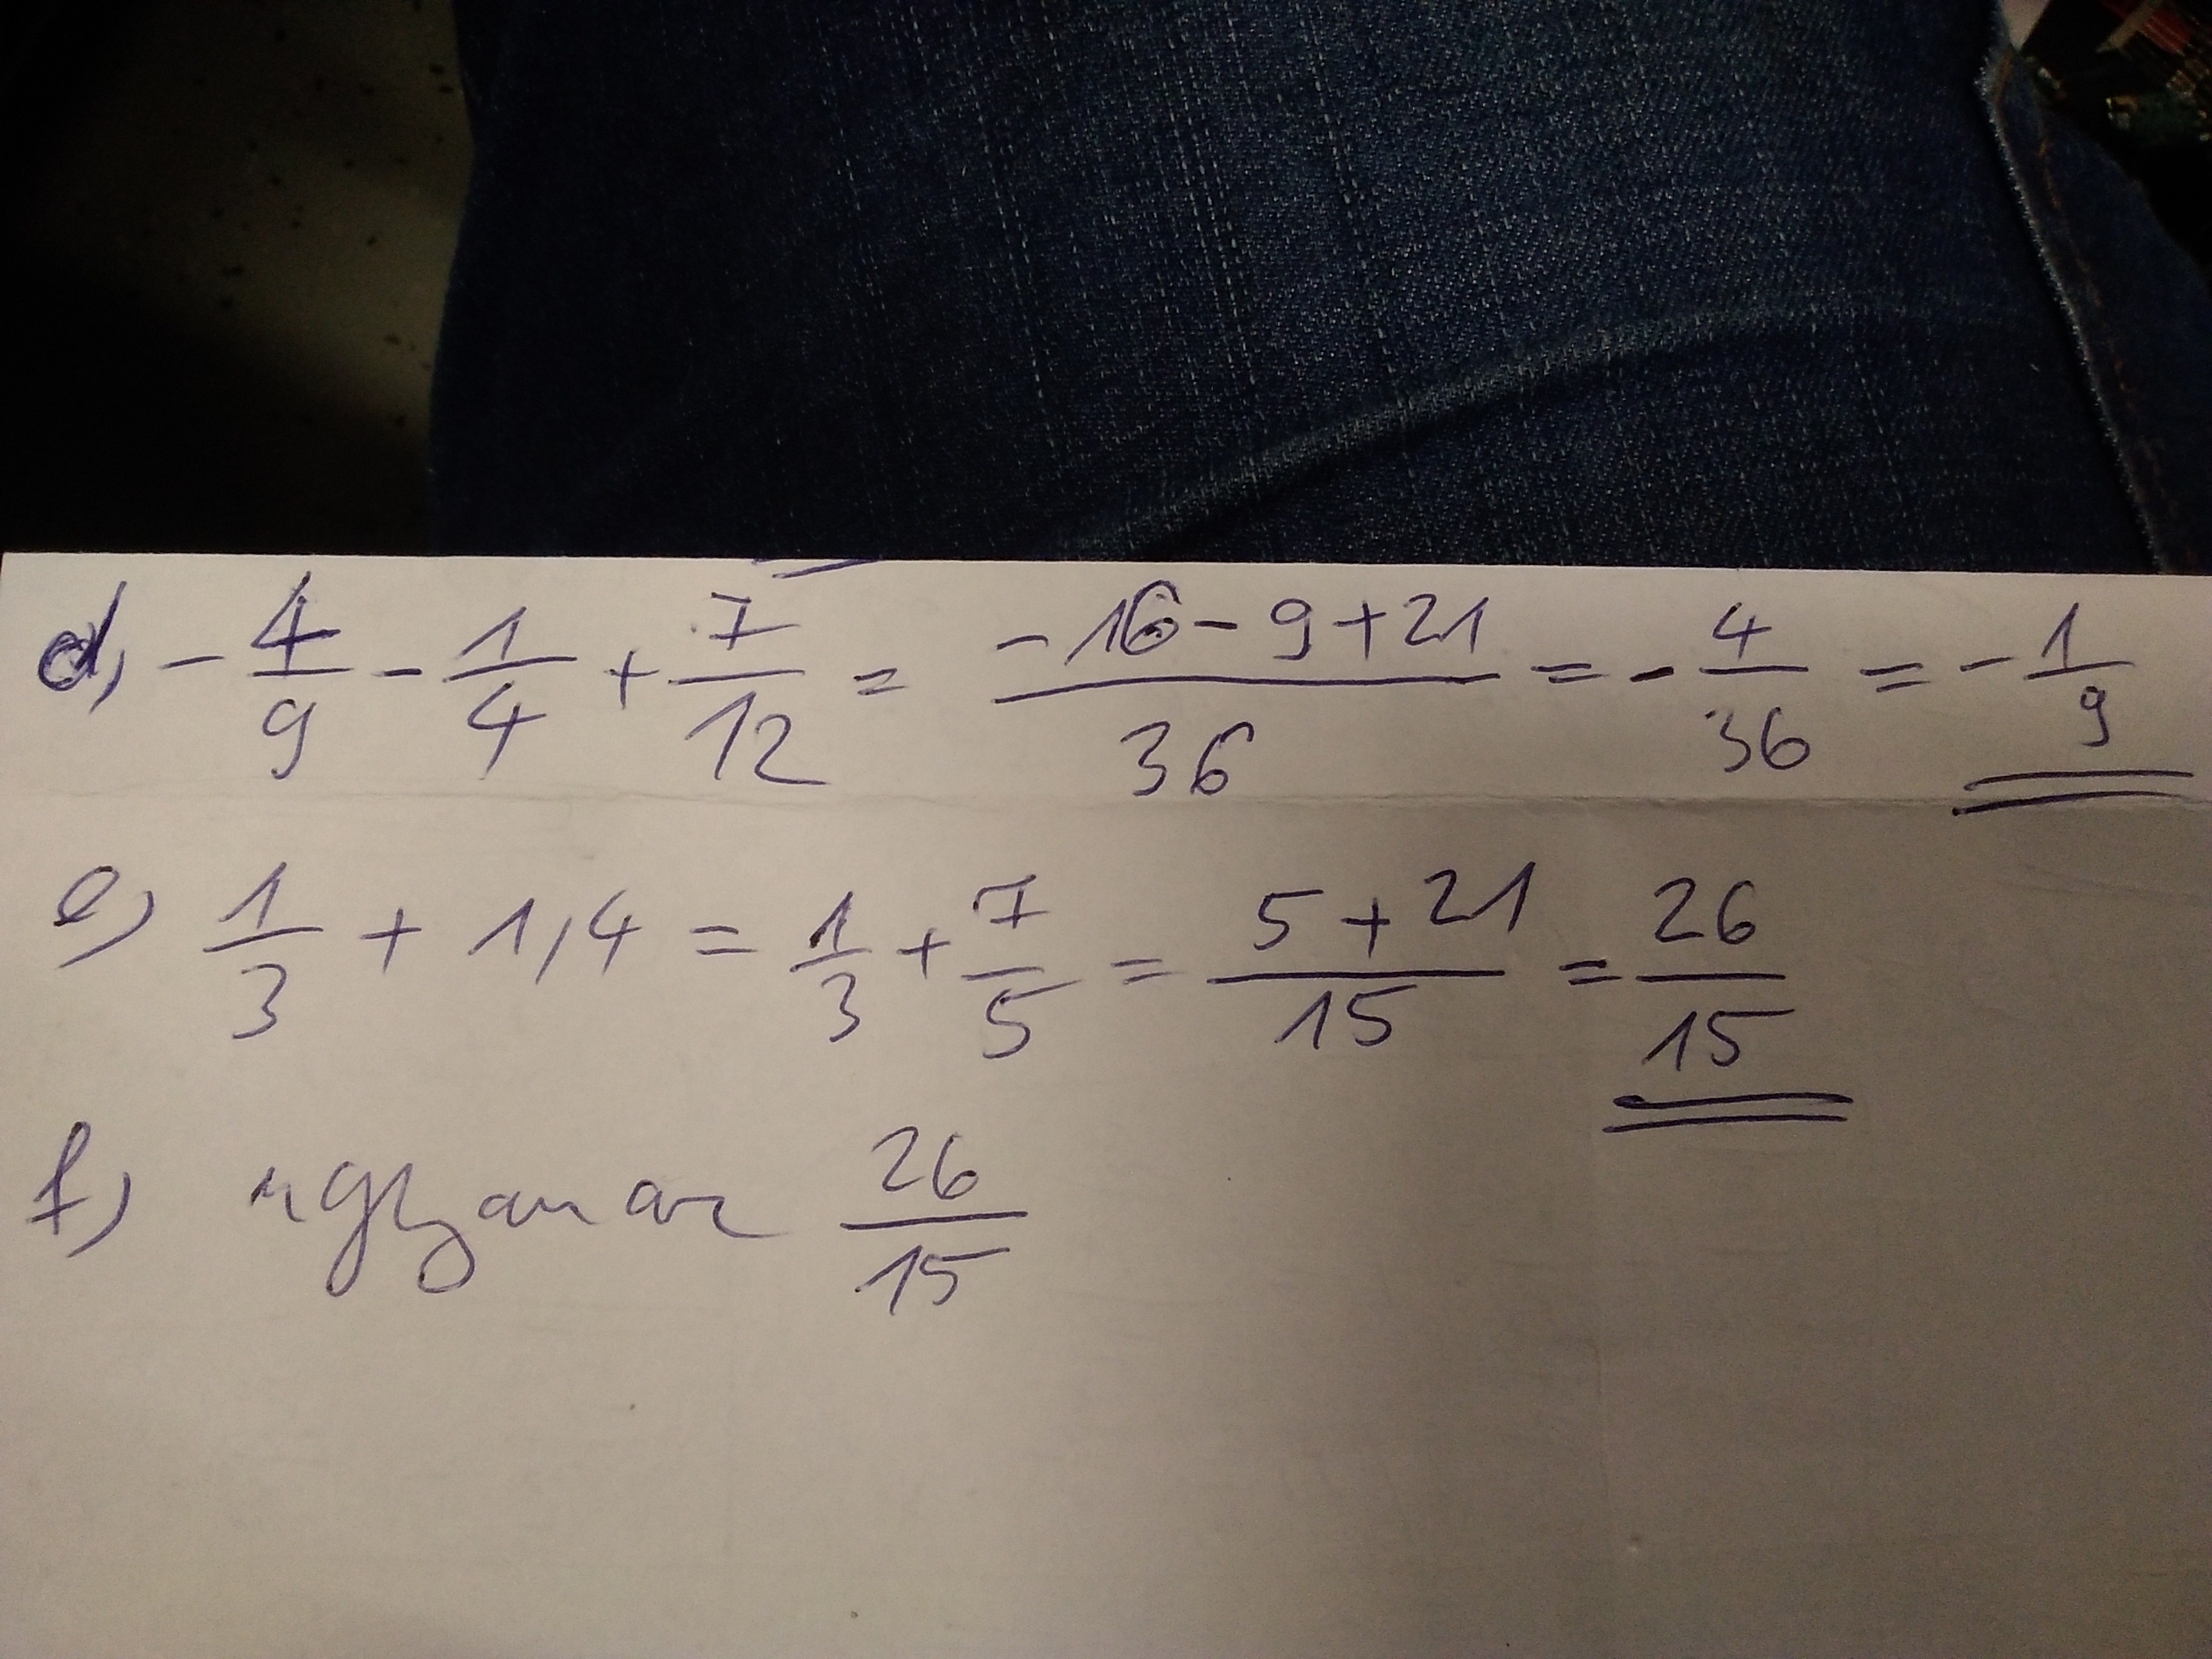 d, -4/9 - 1/4 + 7/12 = (-16 - 9 + 21)/36 = -4/36 = -1/9
e) 1/3 + 1,4 = 1/3 + 7/5 = (5 + 21)/15 = 26/15
f) ugyanaz 26/15